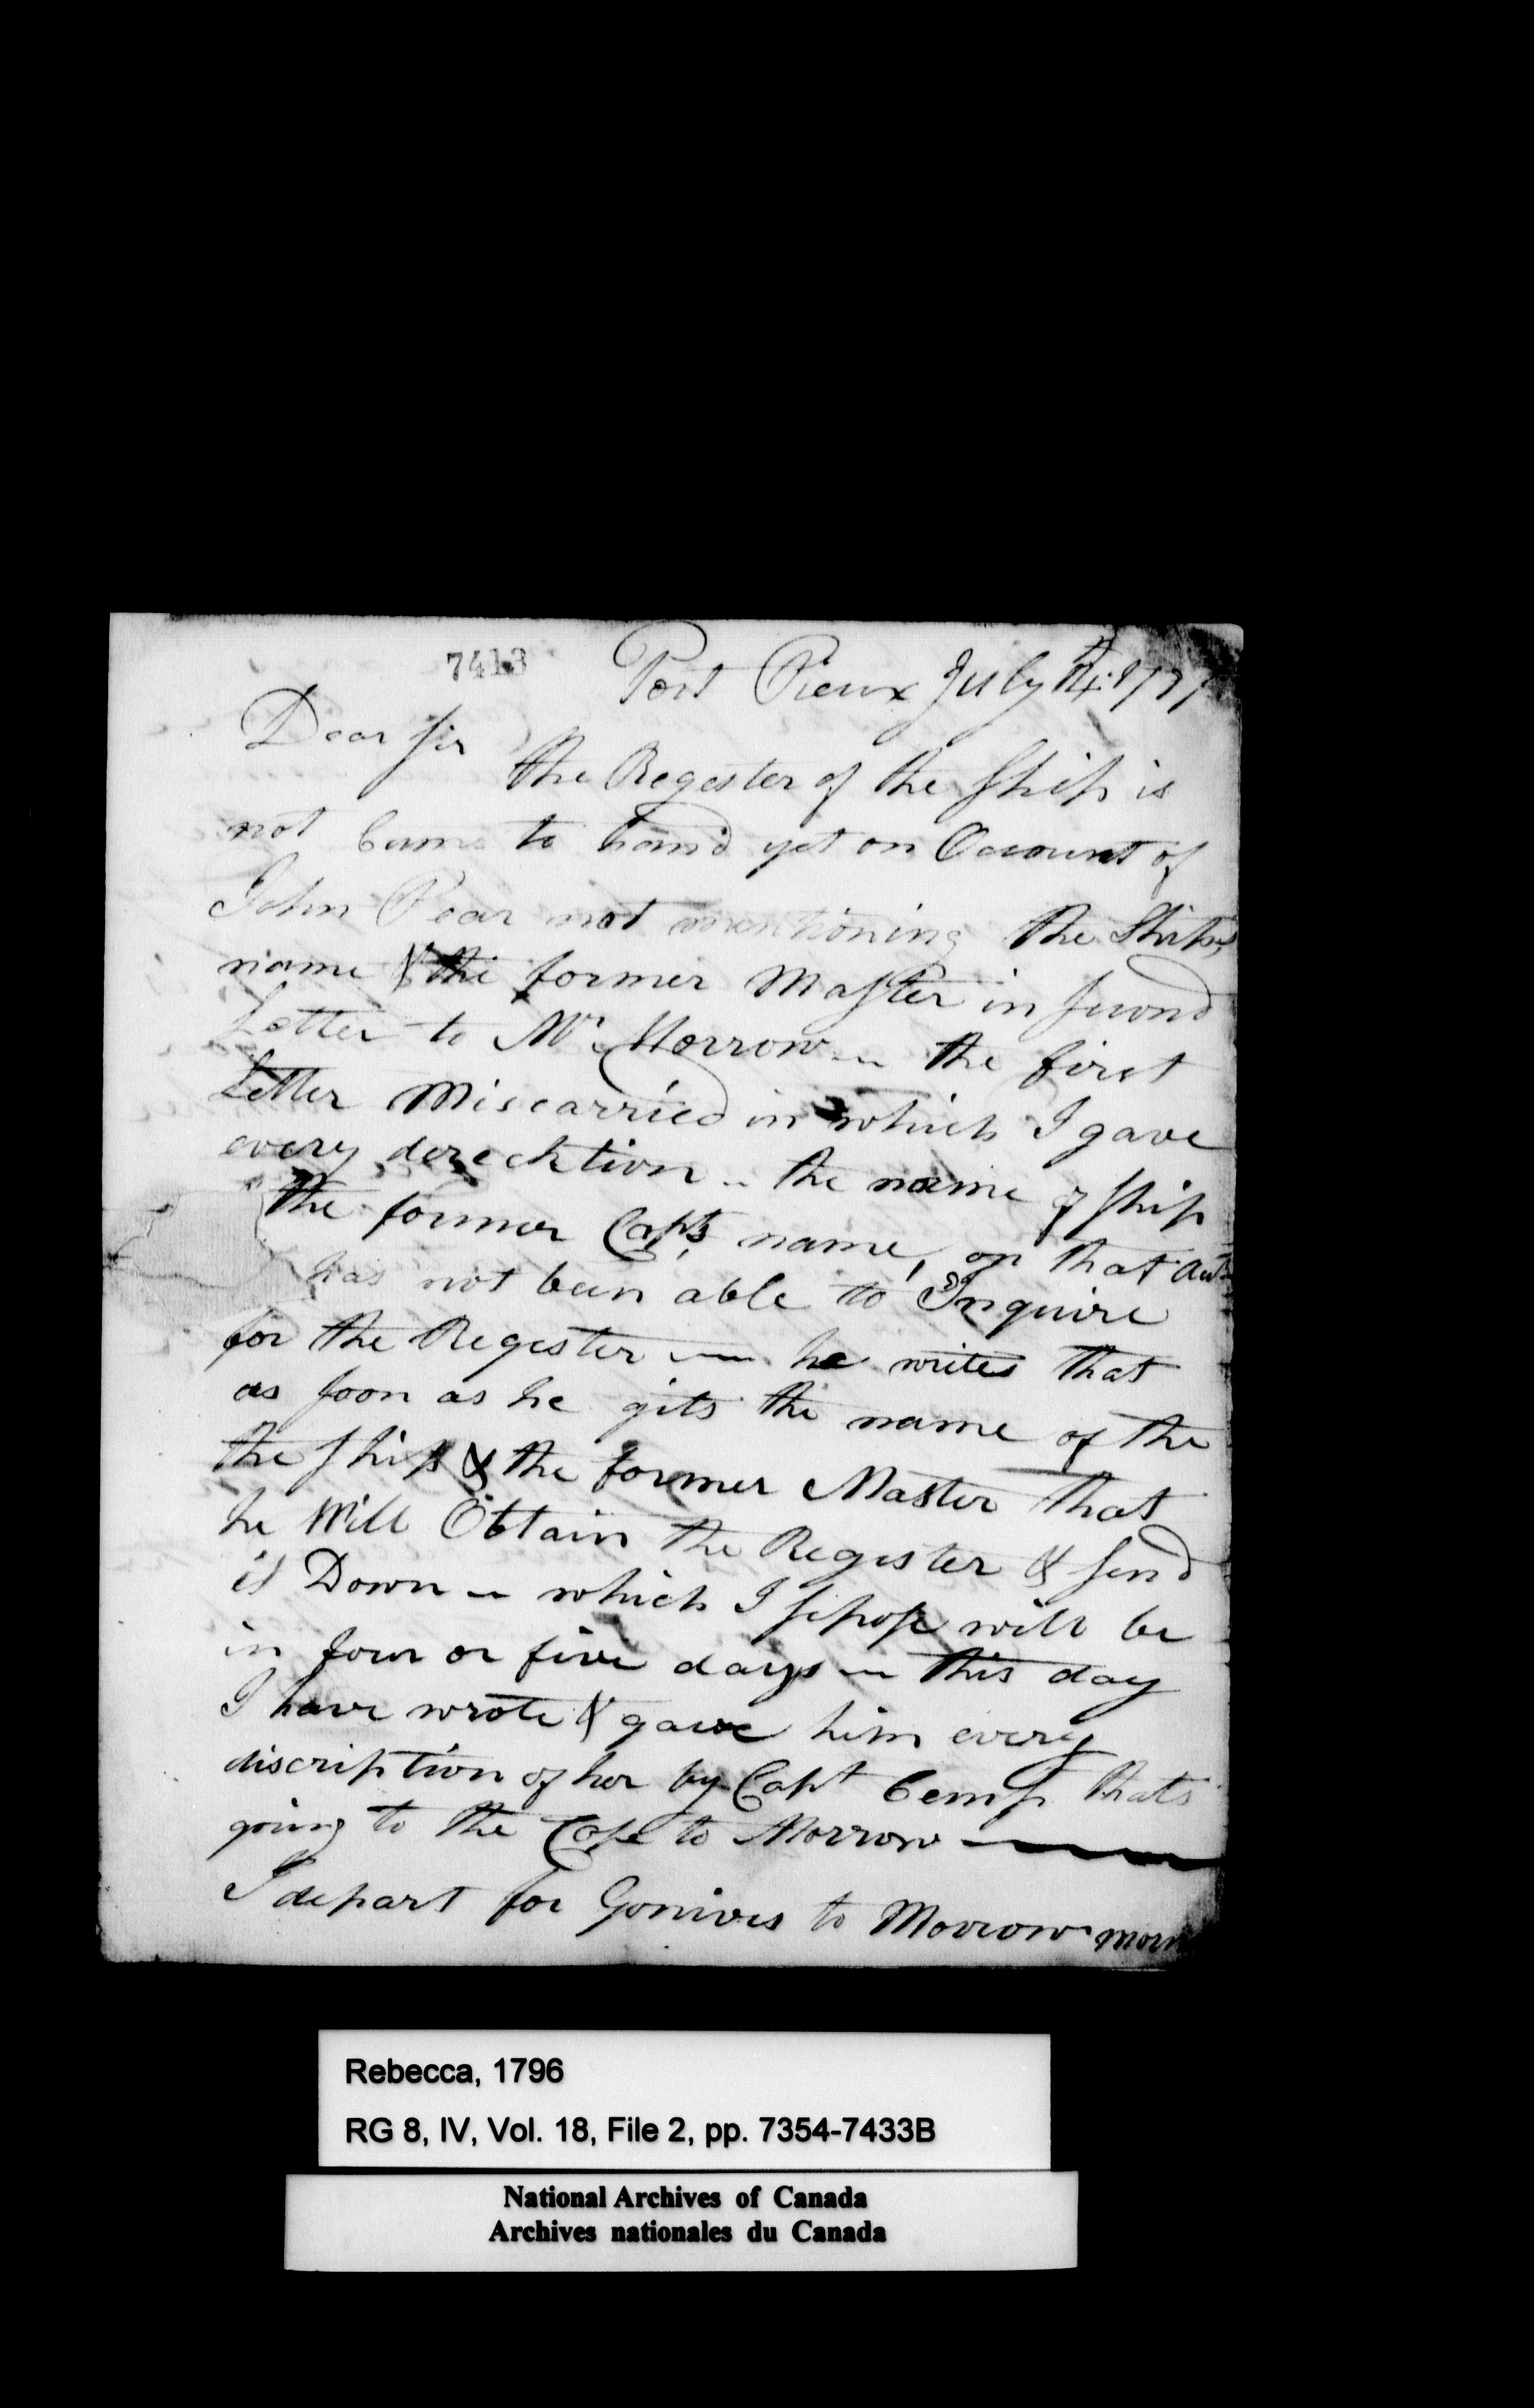 7413
Port Pieux July
Dear Sir
the Regester of the Ship is
not Came to hand yet on Account of
John Pear not mentioning the Ships
name & the former Master in second
Letter to Mr. Morrow — the first
Letter Miscarried in which I gave
every derecktion — the name of ship
the former Capts. name, on that
has not been able to Inquire
for the Regester — he writes that
as soon as he gits the name of the
the ship & the former Master that
he Will Obtain the Register & send
it Down — which I sepose will be
in four or five days — this day
I have wrote & gave him every
discription of her by Capt thats
going to the Cape to Morrow —
I depart for Gonives to Morrow morn
Rebecca, 1796
RG 8, IV, Vol. 18, File 2, pp. 7354-7433B
National Archives of Canada
Archives nationales du Canada